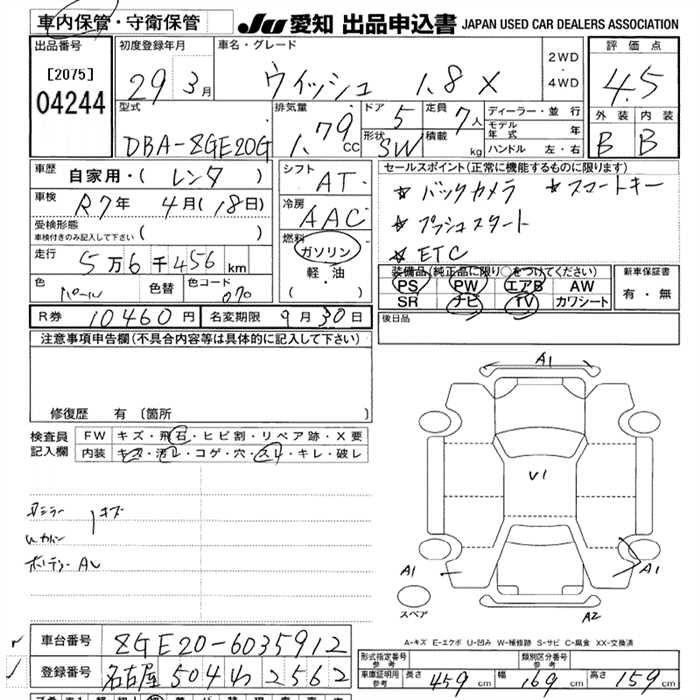 車内保管・守衛保管 JU 愛知 出品申込書 JAPAN USED CAR DEALERS ASSOCIATION
出品番号 [2075] 04244
初度登録年月 29 3月
車名・グレード ウィッシュ 1.8 X
2WD ・ 4WD
評価点 4.5
外装 内装
B B
型式 DBA-ZGE20G
排気量 1.79 CC
ドア 5
形状 SW
定員 7人
積載 kg
ディーラー・並行
モデル年式 年
ハンドル 左・右
車歴 自家用・( レンタ )
車検 R7年 4月(18日)
受検形態 車検付きのみ記入して下さい ( )
走行 5万6千456km
色 パール 色替 色コード 070
シフト AT
冷房 AAC
燃料 ガソリン
軽・油
( ・ )
セールスポイント(正常に機能するものに限ります)
☆ バックカメラ ☆ スマートキー
☆ プッシュスタート
☆ ETC
装備品(純正品に限り○をつけてください)
PS PW エアB AW
SR ナビ TV カワシート
新車保証書
有・無
R券 10460円 名変期限 9月30日
後日品
注意事項申告欄(不具合内容等は具体的に記入して下さい)
修復歴 有 〔箇所 〕
検査員記入欄
FW キズ・飛石・ヒビ割・リペア跡・X要
内装 キズ・汚レ・コゲ・穴・スレ・キレ・破レ
キズ
A1
V1
A1
A1
A2
スペア
A-キズ E-エクボ U-凹み W-補修跡 S-サビ C-腐食 XX-交換済
車台番号 ZGE20-6035912
登録番号 名古屋 504 わ 2562
形式指定番号 参考
類別区分番号 参考
車庫証明用 参考 長さ 459cm 幅 169cm 高さ 159cm